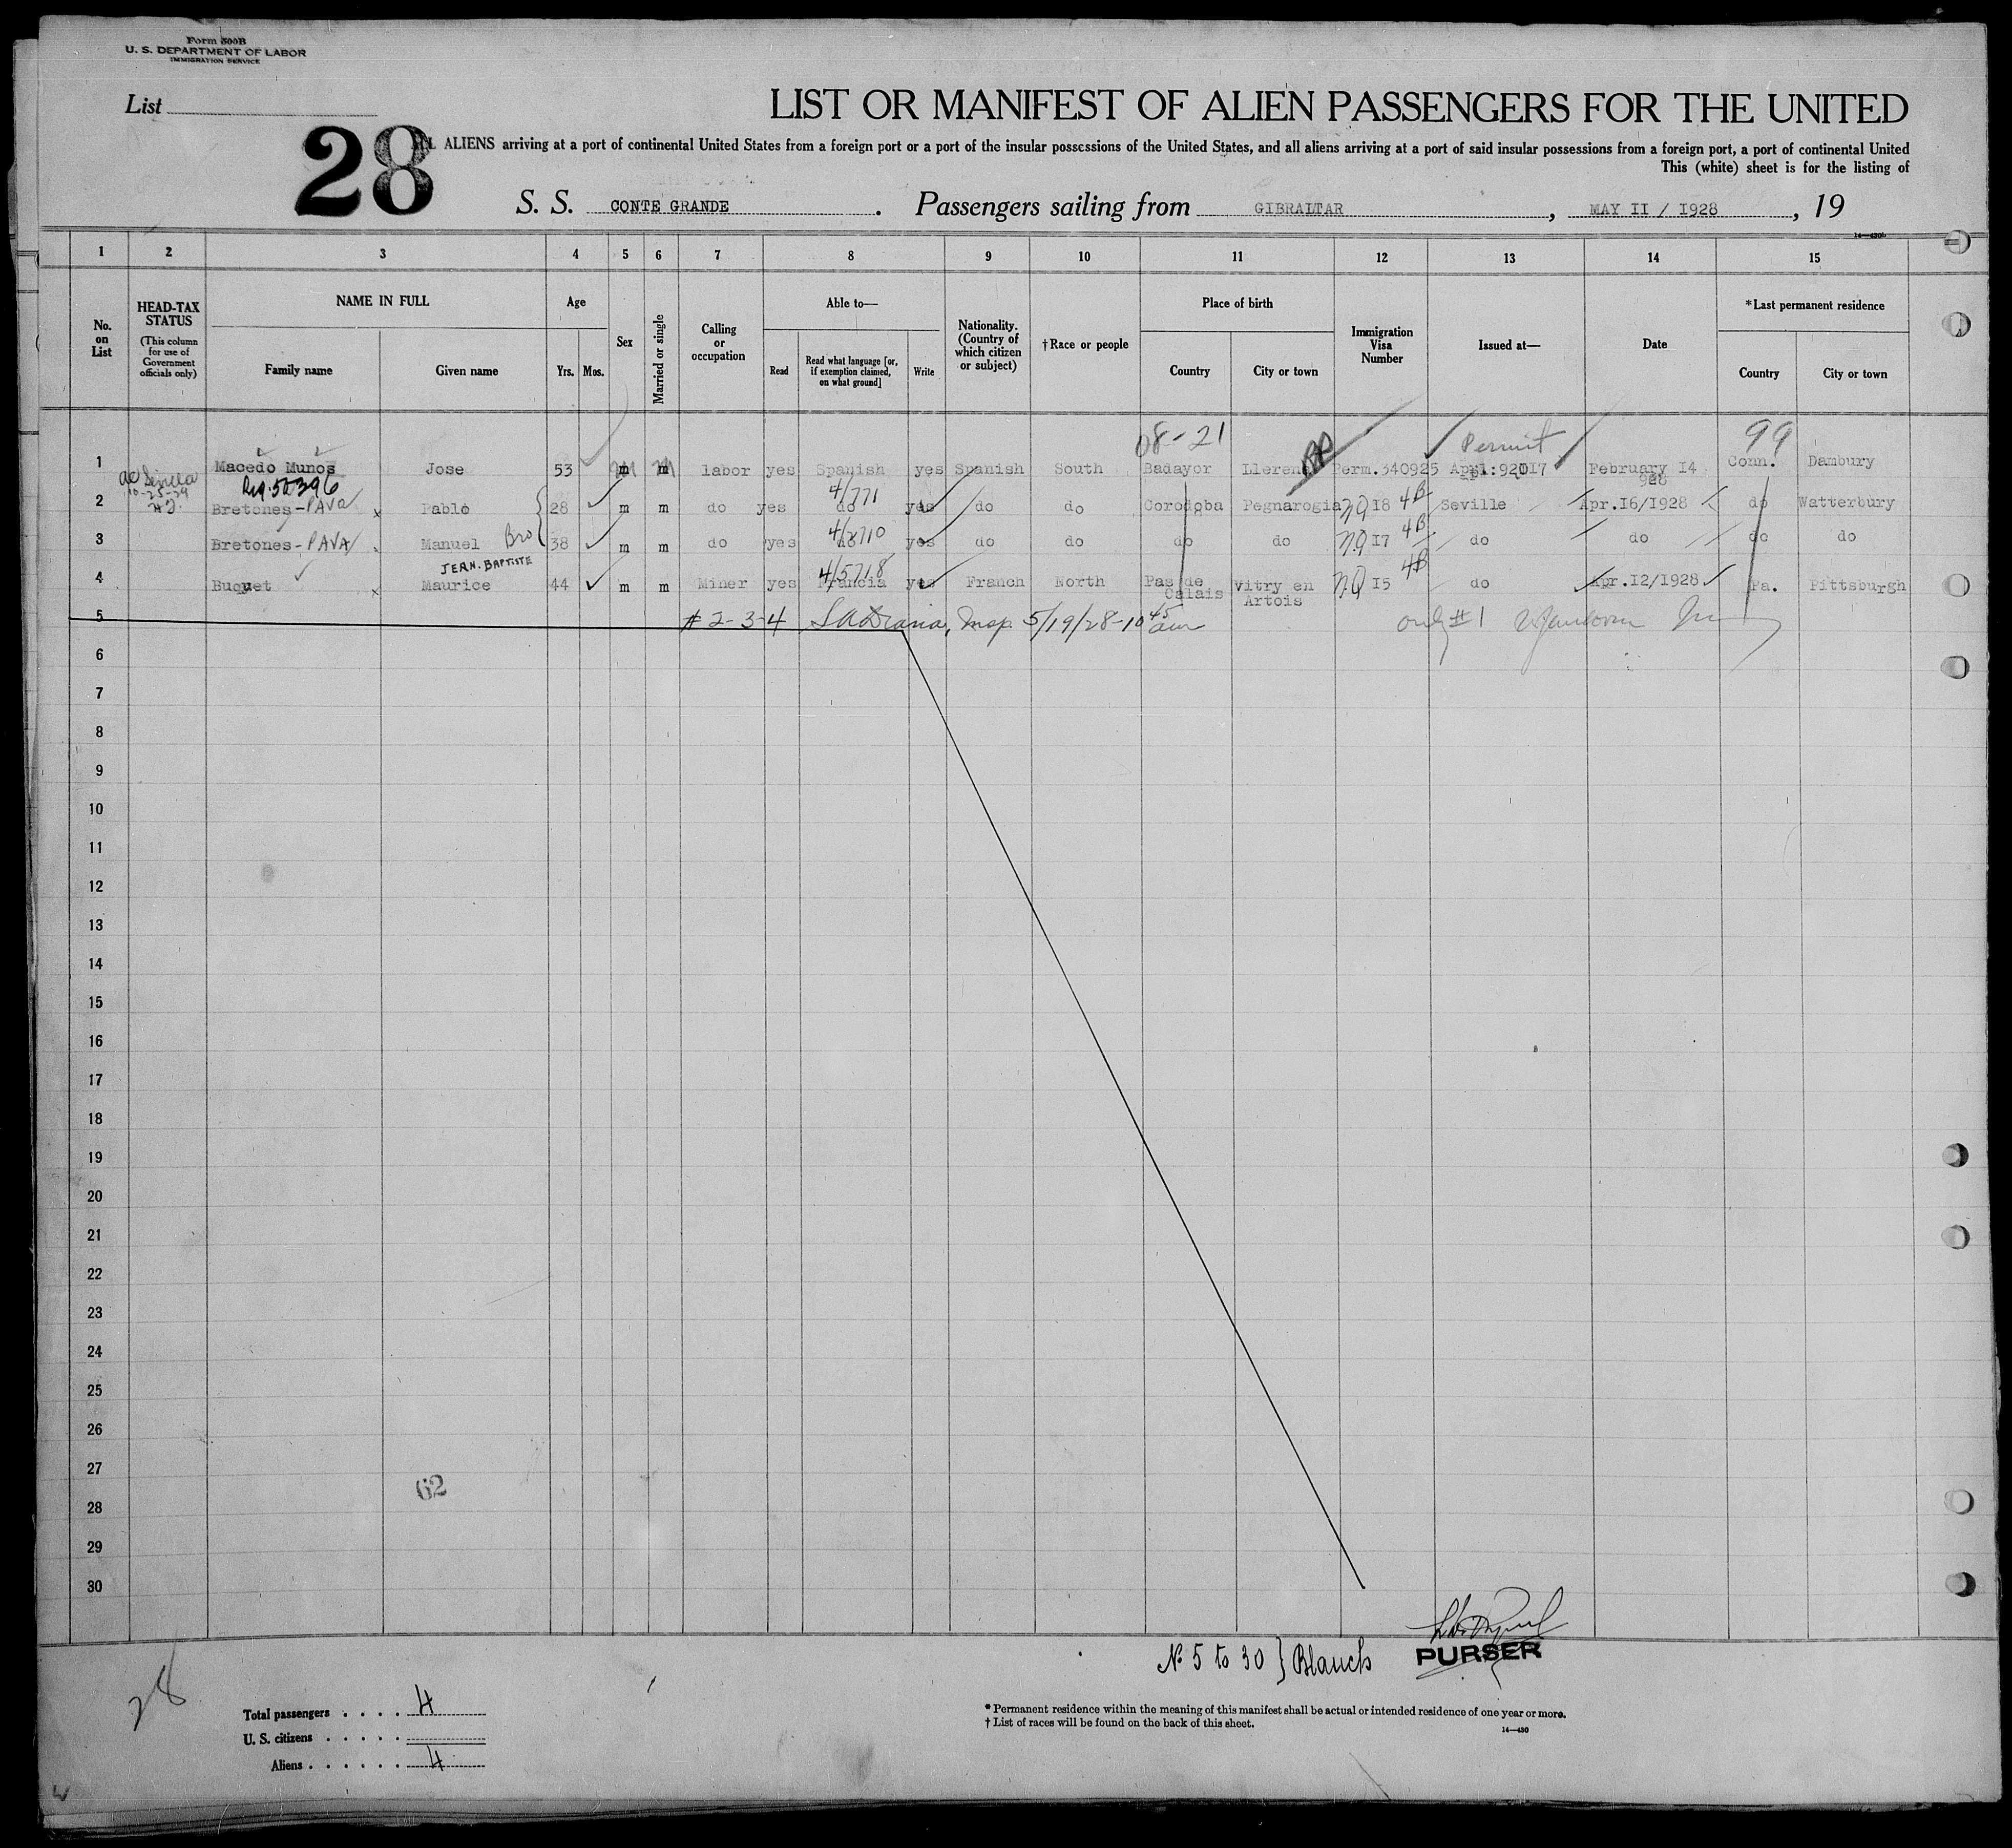 Form 500B
U. S. DEPARTMENT OF LABOR
IMMIGRATION SERVICE
List
28
LIST OR MANIFEST OF ALIEN PASSENGERS FOR THE UNITED
ALL ALIENS arriving at a port of continental United States from a foreign port or a port of the insular possessions of the United States, and all aliens arriving at a port of said insular possessions from a foreign port, a port of continental United
This (white) sheet is for the listing of
S. S. CONTE GRANDE. Passengers sailing from GIBRALTAR, MAY II / I928, 19
1 2 3 4 5 6 7 8 9 10 11 12 13 14 15
No. on List
HEAD-TAX STATUS (This column for use of Government officials only)
NAME IN FULL
Family name
Given name
Age
Yrs. Mos.
Sex
Married or single
Calling or occupation
Able to—
Read
Read what language [or, if exemption claimed, on what ground]
Write
Nationality. (Country of which citizen or subject)
†Race or people
Place of birth
Country
City or town
Immigration Visa Number
Issued at—
Date
*Last permanent residence
Country
City or town
08-21 Permit 99
1 Macedo Munos Jose 53 m m labor yes Spanish yes Spanish South Badayor Llerena Perm.340925 Apl:920I7 February I4 928 Conn. Dambury
Sevilla 10-25-29 Reg. 52396
2 Bretones-PAVA Pablo 28 m m do yes do 4/771 yes do do Corodoba Pegnarogia NQ I8 4B Seville Apr.I6/I928 do Watterbury
3 Bretones-PAVA Manuel Bro 38 m m do yes do 4/3710 yes do do do do NQ I7 4B do do do do
JEAN. BAPTISTE
4 Buquet Maurice 44 m m Miner yes Francia 4/5718 yes Franch North Pas de Calais Vitry en Artois NQ I5 4B do Apr.I2/I928 Pa. Pittsburgh
5 # 2-3-4 Insp. 5/19/28-10 45 am only #1
6
7
8
9
10
11
12
13
14
15
16
17
18
19
20
21
22
23
24
25
26
27
62
28
29
30
No 5 to 30 } Blanch
PURSER
28
Total passengers . . . . 4
U. S. citizens . . . . .
Aliens . . . . . . 4
* Permanent residence within the meaning of this manifest shall be actual or intended residence of one year or more.
† List of races will be found on the back of this sheet.
14—430